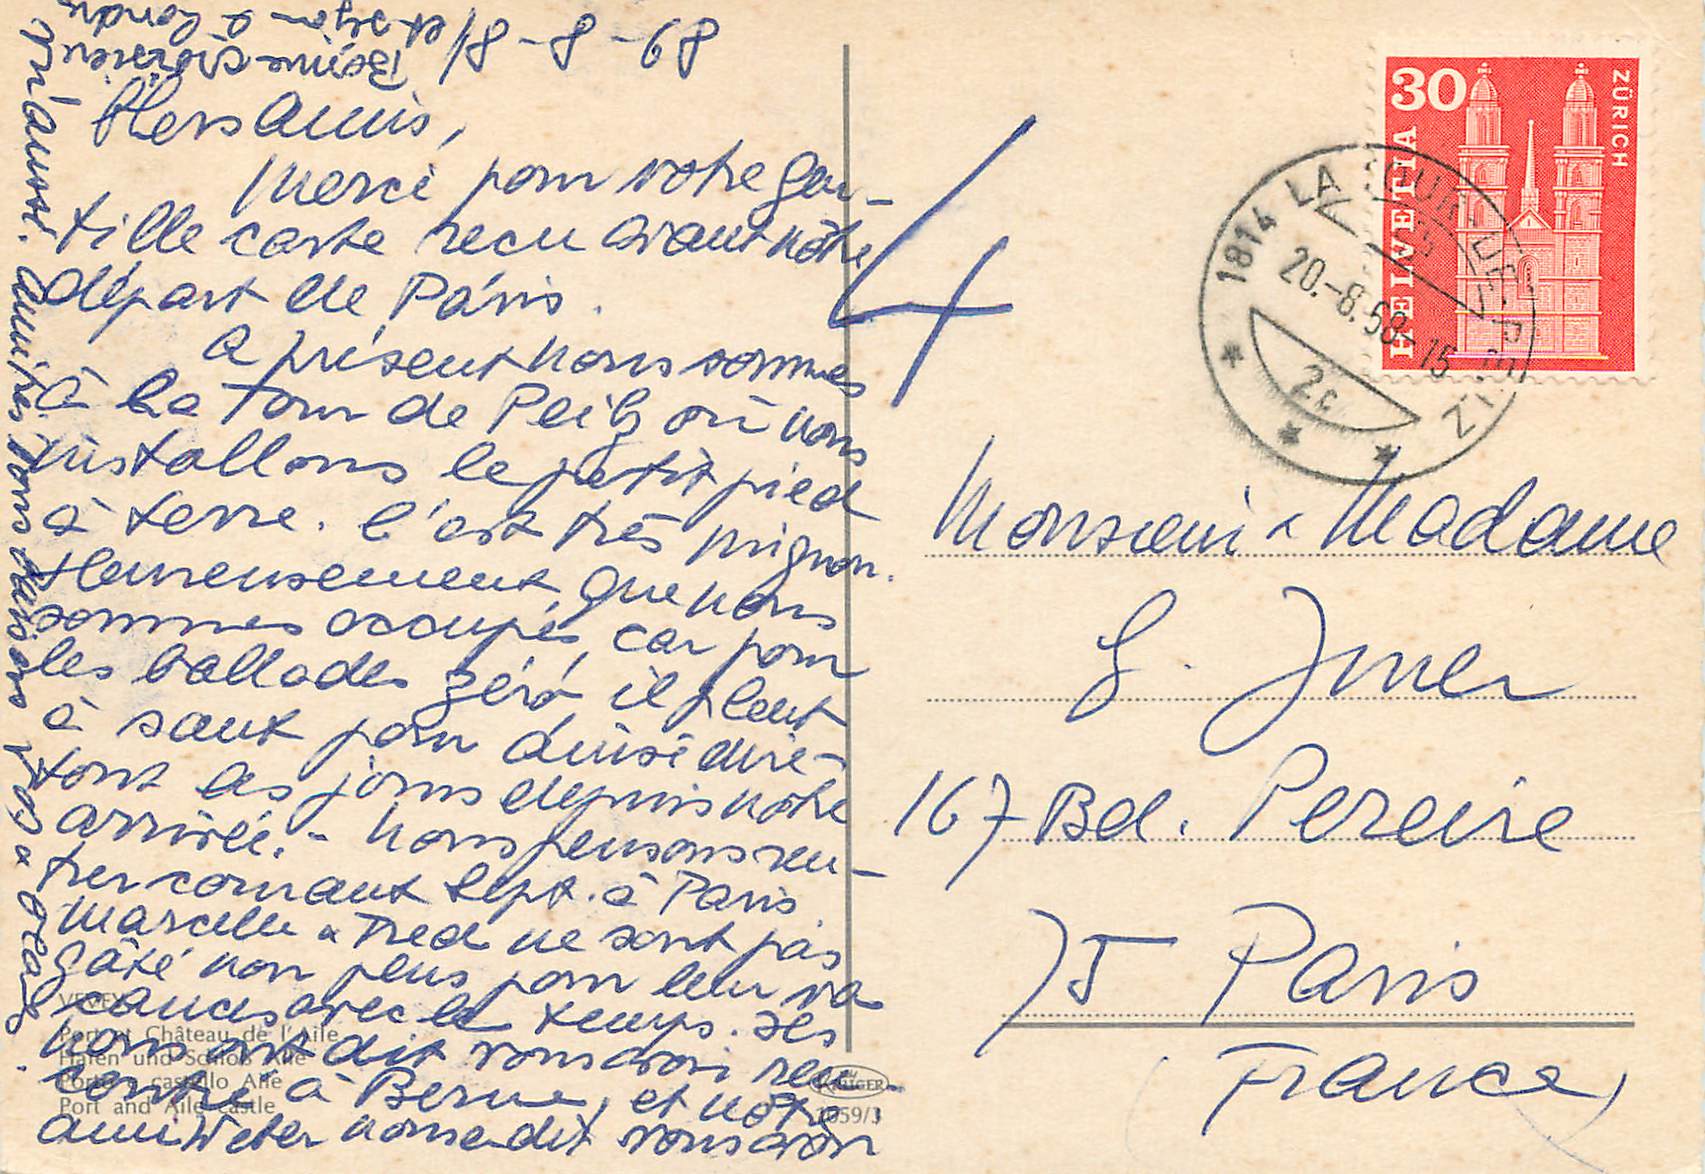 89 - 8 - 8/
Bonne croisière
et séjour à Londres
Chers Amis,
Merci pour votre gen-
tille carte recu avant nôtre
départ de Paris.
A présent nous sommes
à la Tour de Peilz où nous
installons le petit pied
à terre. C'est très mignon.
Heureusement, que nous
sommes occupés, car pour
les ballades zéró, il pleut
à saut pour ainsi dire-
tout les jours depuis nôtre
arrivée. - Nous pensons ren-
trer courant Sept. à Paris.
Marcelle & Fred ne sont pas
gâté non plus pour leur va
cances avec le temps. Ils
nous ont dit vous avoir ren-
contré à Berne, et nôtre
ami Peter nous a dit vous avoir
vu aussi. Amitiés tous deux
VEVEY
Port et Château de l'Aile
Hafen und Schloß Aile
Porto e castello Aile
Port and Aile castle
KRÜGER
1059/3
4
30
HELVETIA
ZÜRICH
1814 LA TOUR-DE-PEILZ
20.-8.68-15
2c
Monsieur & Madame
G. Imer
167 Bd. Pereire
75 Paris
France